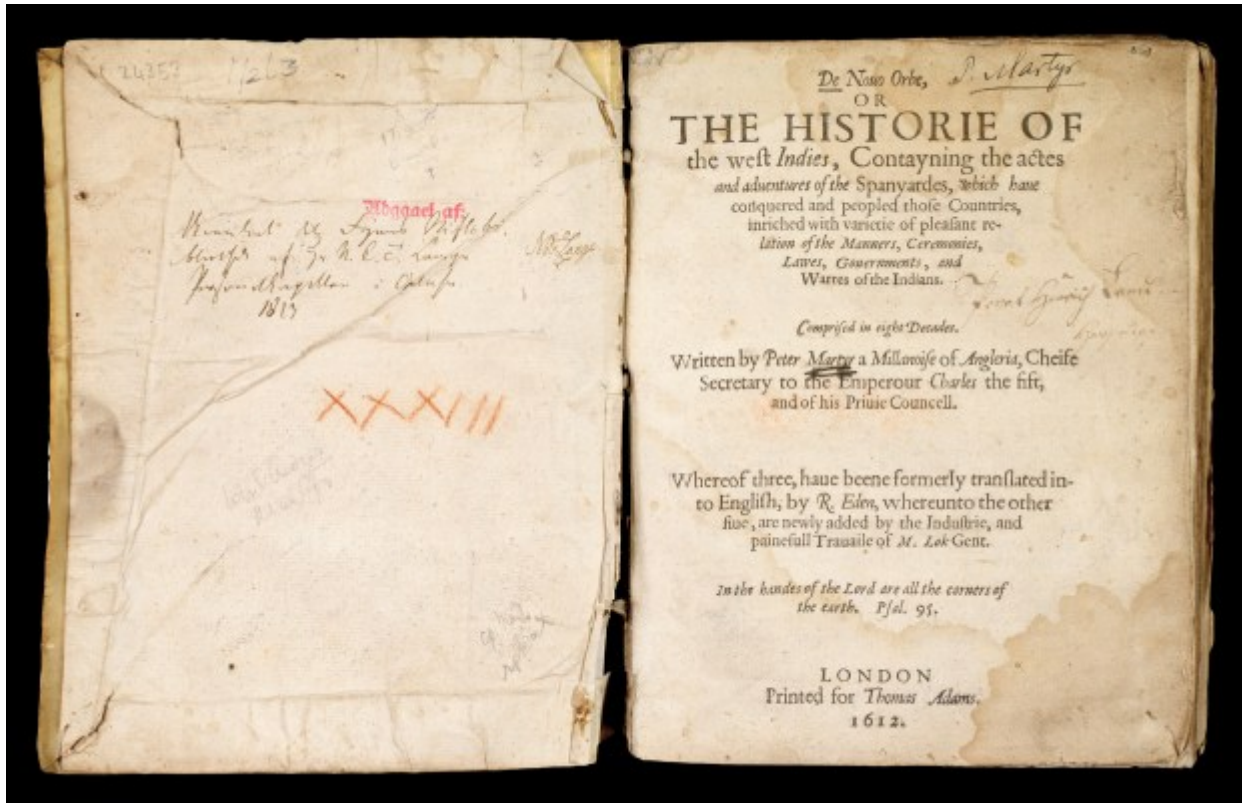 24353
1263
Abggael af.
1813
XXXVII
P. Martyr
De Nouo Orbe,
OR
THE HISTORIE OF
the weſt Indies, Contayning the actes
and aduentures of the Spanyardes, which haue
conquered and peopled thoſe Countries,
inriched with varietie of pleaſant re-
lation of the Manners, Ceremonies,
Lawes, Gouernments, and
Warres of the Indians.
Compriſed in eight Decades.
Written by Peter Martyr a Millanoiſe of Angleria, Cheife
Secretary to the Emperour Charles the fift,
and of his Priuie Councell.
Whereof three, haue beene formerly tranſlated in-
to Engliſh, by R. Eden, whereunto the other
fiue, are newly added by the Induſtrie, and
painefull Trauaile of M. Lok Gent.
In the handes of the Lord are all the corners of
the earth. Pſal. 95.
LONDON
Printed for Thomas Adams.
1612.